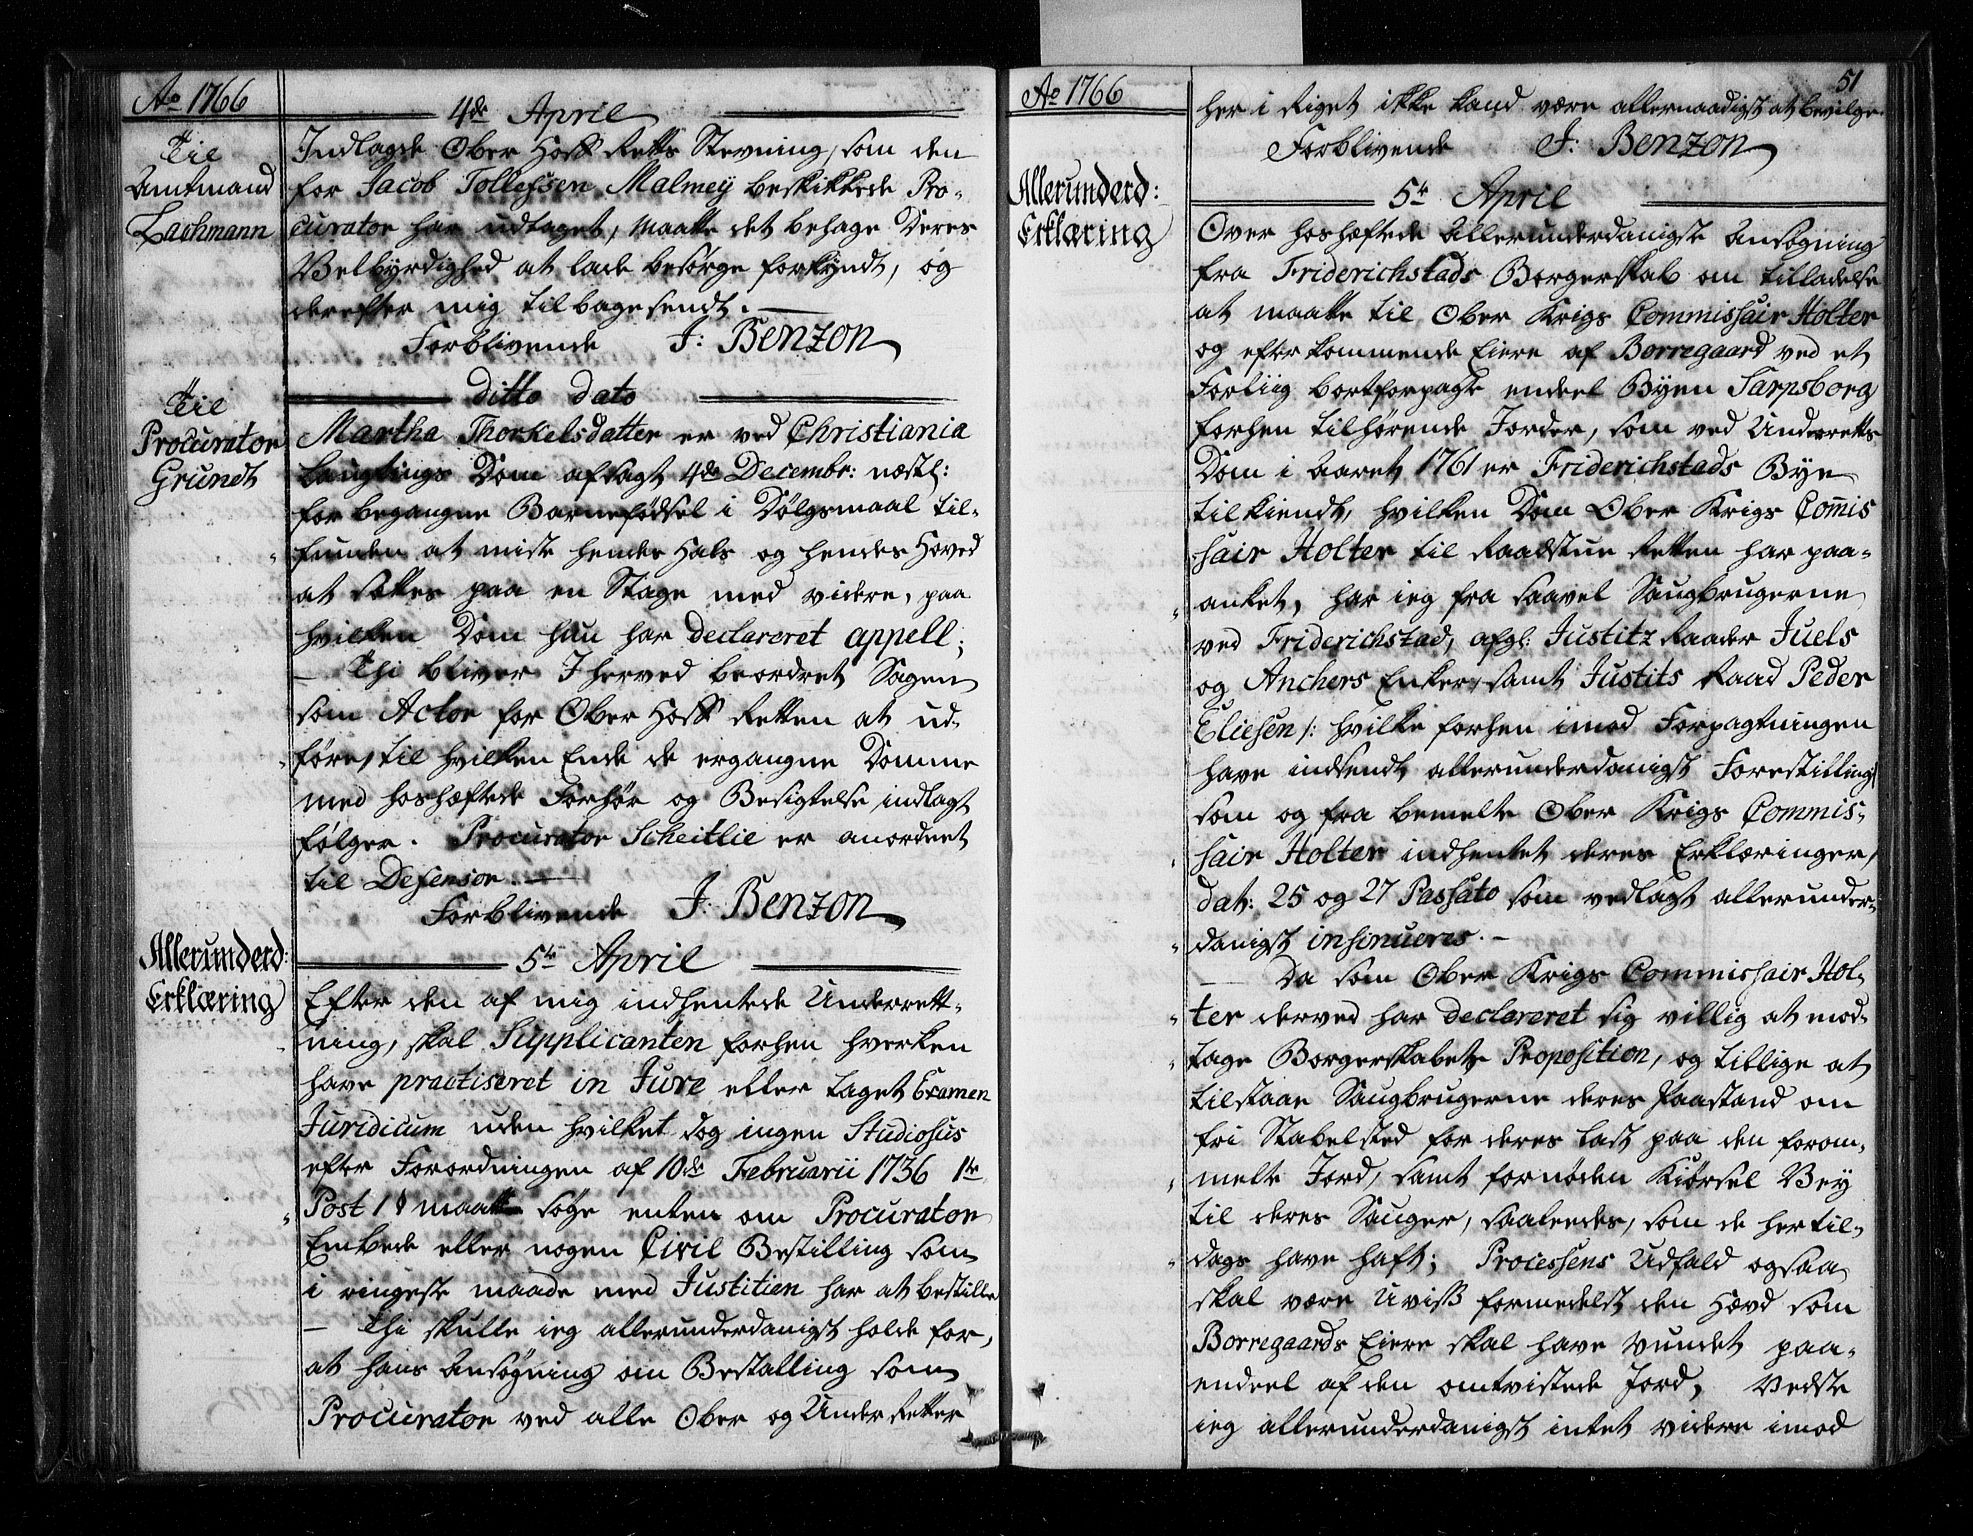 Ao 1766
4de April
Til
Amtmand
Lachmann
Indlagde Ober Hoff Retts Stevning, som den
for Jacob Tollefsen Malmey beskikkede Pro-
curator har udtaget, maatte det behage Deres
Velbyrdighed at lade besørge forkyndt, og
derefter mig tilbagesendt.
Forblivende J: Benzon
ditto dato
Til
Procurator
Grundt
Martha Thorkelsdatter er ved Christiania
Laugtings Dom afsagt 4de Decembr: næstl:
for begangne Barnefødsel i Dølgsmaal til-
funden at miste hendes Hals og hendes Hoved
at sættes paa en Stage med videre, paa
hvilken Dom hun har declareret appell;
– Thi bliver I herved beordret Sagen
som Actor for Ober Hoff Retten at ud-
føre, til hvilken Ende de ergangne Domme
med hoshæftede Forhør og Besigtelse indlagt
følger. Procurator Scheitlie er anordnet
til Defensor.
Forblivende J: Benzon
5te April
Allerunderd:
Erklæring
Efter den af mig indhentede Underrett-
ning, skal Supplicanten forhen hverken
have practiseret in Jure eller taget Examen
Juridicum uden hvilket dog ingen Studiosus
efter Forordningen af 10de Februarii 1736 1te
Post 1 § maatte søge enten om Procurator
Embede eller nogen Civil Bestilling som
i ringeste maade med Justitien har at bestille
– Thi skulle ieg allerunderdanigst holde for,
at hans Ansøgning om Bestalling som
Procurator ved alle Ober og Under Retter
Ao 1766
51
her i Riget ikke kand være allernaadigst at bevilge.
Forblivende J: Benzon
5te April
Allerunderd:
Erklæring
Over hoshæftede allerunderdanigste Ansøgning
fra Friderichstads Borgerskab om tilladelse
at maatte til Ober Krigs Commissair Holter
og efterkommende Eiere af Borregaard ved et
Forliig bortforpagte endeel Byen Sarpsborg
forhen tilhørende Jorder, som ved Underretts
Dom i Aaret 1761 er Friderichstads Bye
tilkiendt, hvilken Dom Ober Krigs Comis
sair Holter til Raadstue Retten har paa-
anket, har ieg fra saavel Saugbrugerne
ved Friderichstad, afgl: Justitz Raader Juels
og Anchers Enker, samt Justits Raad Peder
Eliesen /: hvilke forhen imod Forpagtningen
have indsendt allerunderdanigst Forestilling/
som og fra bemelte Ober Krigs Commis-
sair Holter indhentet deres Erklæringer,
dat: 25 og 27 Passato som vedlagt allerunder-
danigst insinueres. –
– Da som Ober Krigs Commissair Hol-
ter derved har declareret sig villig at mod-
tage Borgerskabets Proposition, og tillige at
tilstaae Saugbrugerne deres Paastand om
fri Stabelsted for deres Last paa den forom-
melte Jord, samt fornøden Kiørsel Vey
til deres Sauger, saaledes, som de hertil-
dags have haft; Processens Udfald ogsaa
skal være Uviss formedelst den Hævd som
Borregaards Eiere skal have vundet paa
endeel af den omtvistede Jord, Vedste
ieg allerunderdanigst intet videre imod